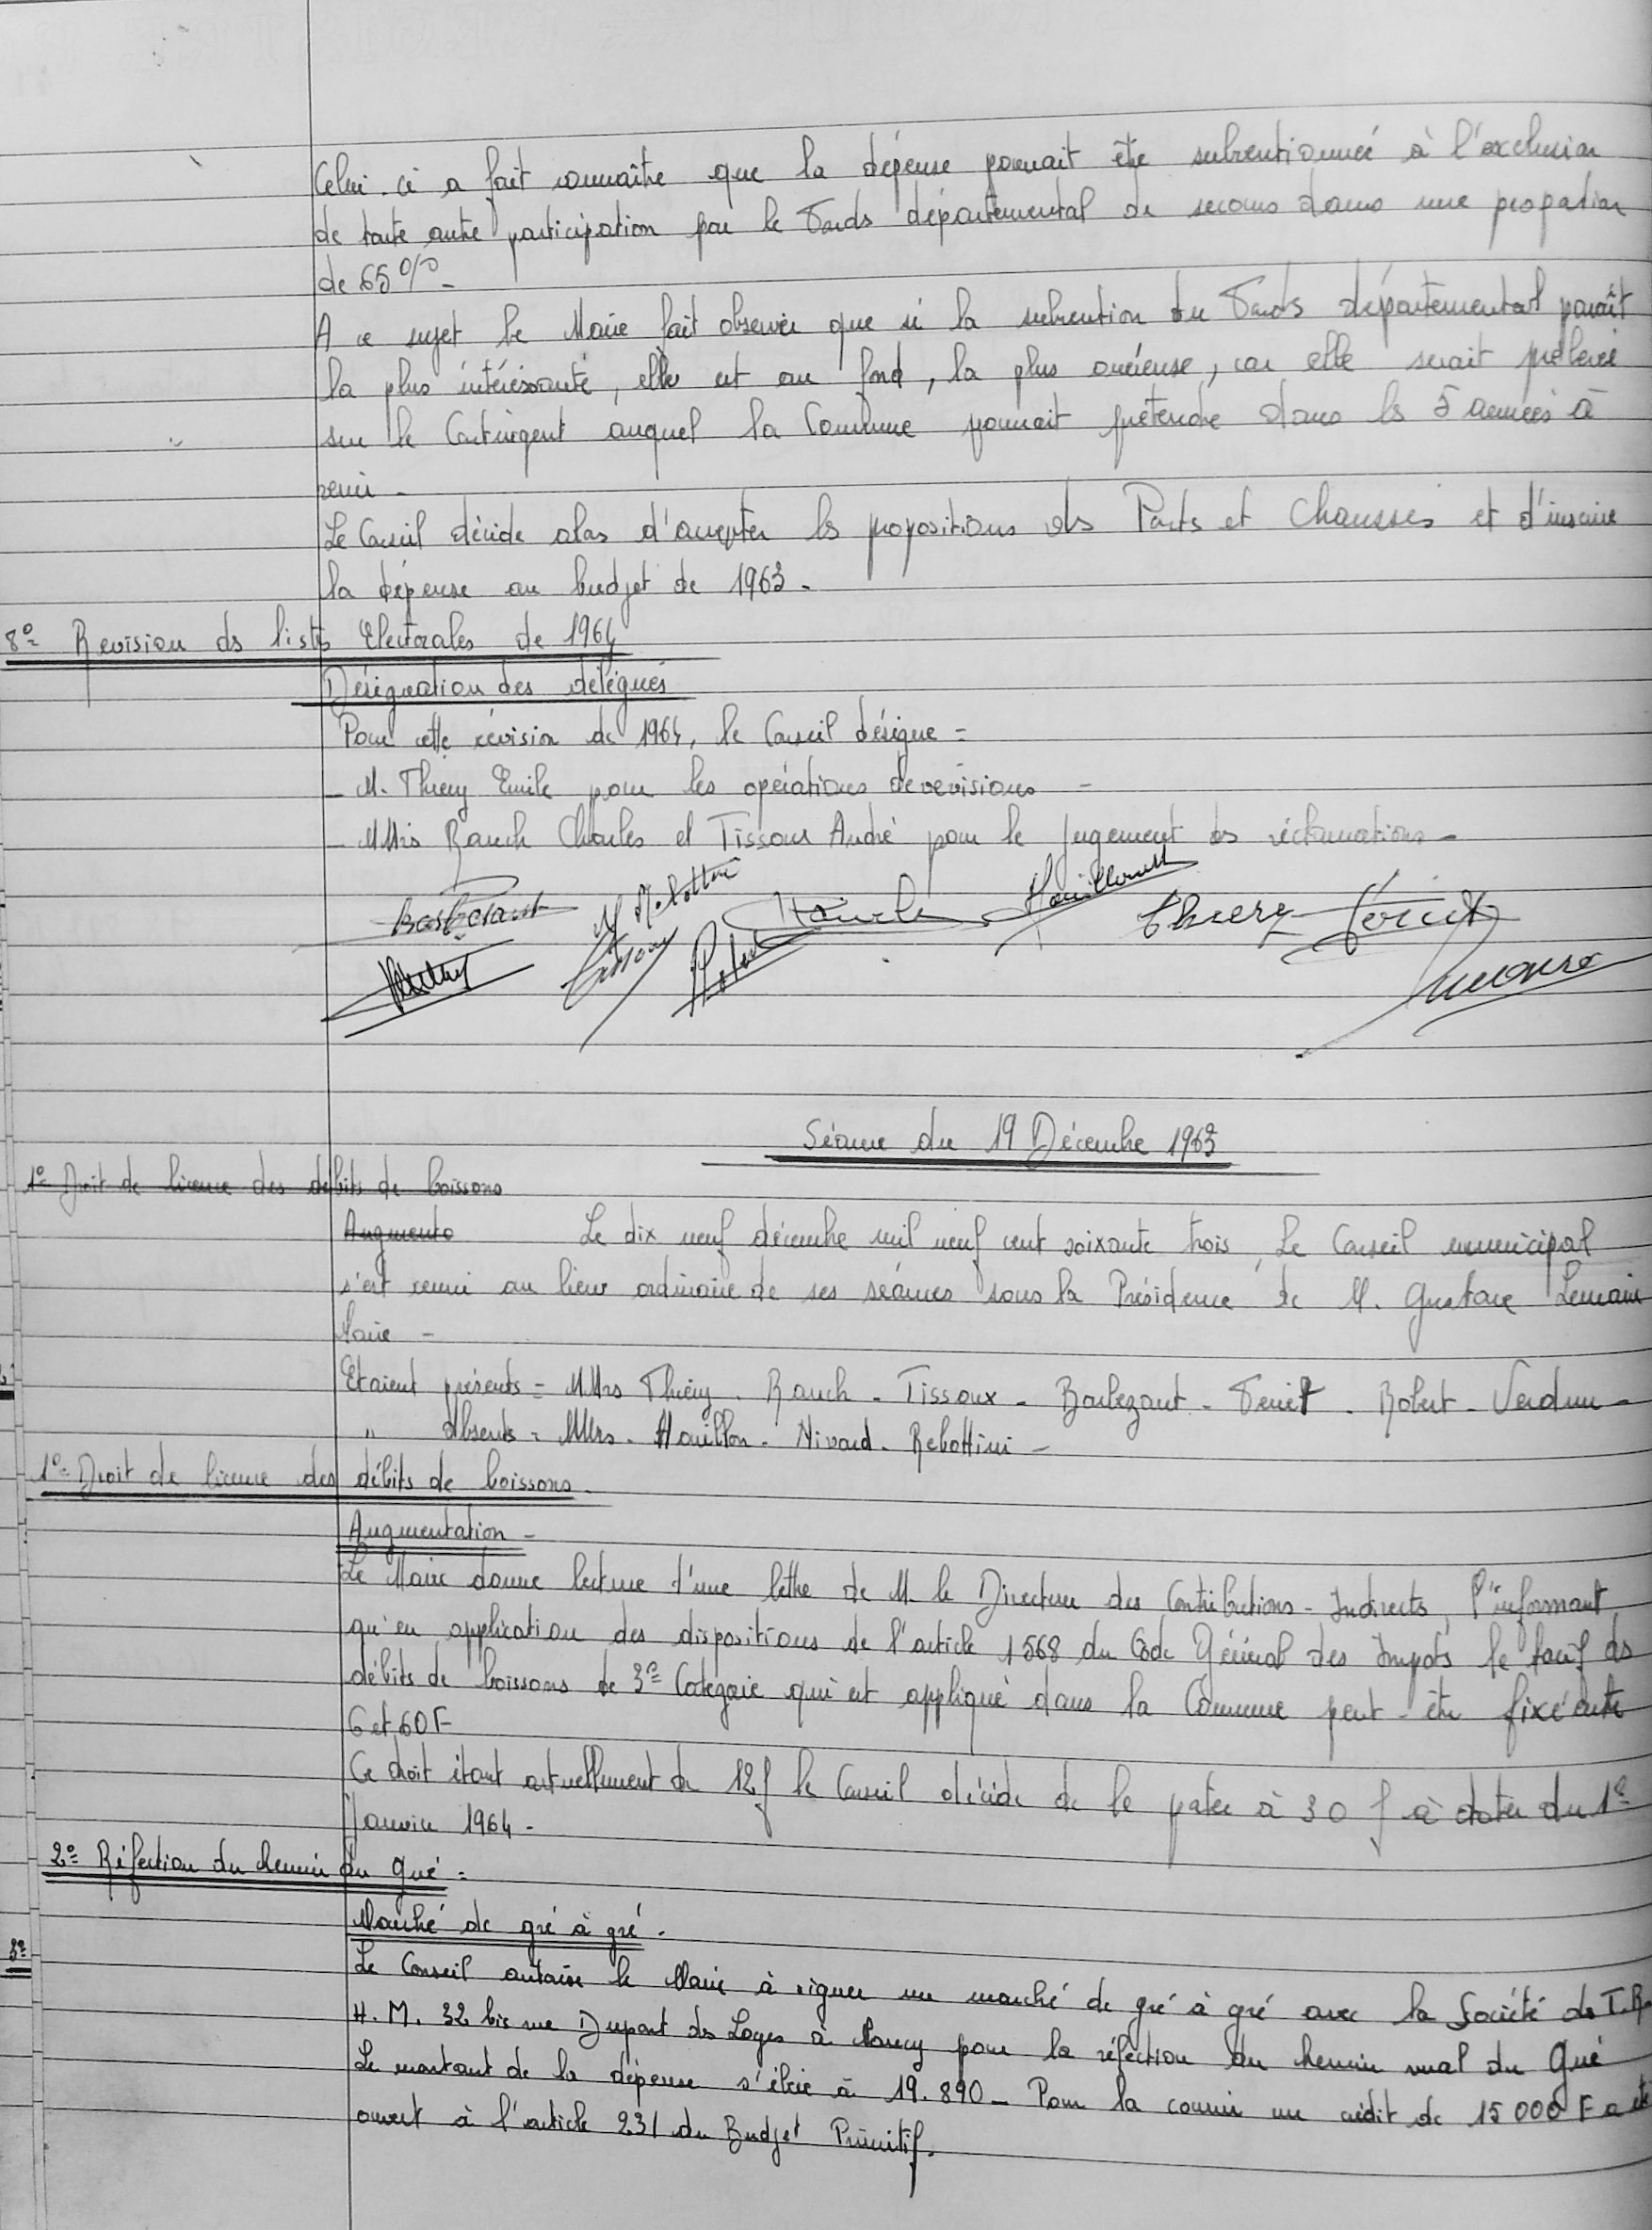 Celui-ci a fait connaître que la dépense pourrait être subventionnée à l'exclusion
de toute autre participation par le Fonds départemental de secours dans une proportion
de 65 %-
A ce sujet le Maire fait observer que si la subvention du Fonds départemental paraît
la plus intéressante, elle est au fond, la plus onéreuse, car elle serait prélevée
sur le Contingent auquel la Commune pourrait prétendre dans les 5 années à
venir -
Le Conseil décide alors d'accepter les propositions des Ponts et Chaussés et d'inscrire
la dépense au budget de 1963 -
8°= Revision des listes Electorales de 1964
Désignation des délégués
Pour cette révision de 1964, le Conseil désigne =
- M. Thiery Emile pour les opérations de revisions -
- MMrs Rauch Charles et Tissoux André pour le jugement des réclamations -
Barbezant M Rebottini Rauch Houillon Thiery Ferriet
Tissoux Robert Lemaire
Séance du 19 Décembre 1963
1°= Droit de licence des débits de boissons
Augmenta Le dix neuf décembre mil neuf cent soixante trois, Le Conseil municipal
s'est réuni au lieu ordinaire de ses séances sous la Présidence de M. Gustave Lemaire
Maire -
Etaient présents = MMrs Thiéry - Rauch - Tissoux - Barbezant - Ferriet - Robert - Verdun -
" Absents = MMrs - Houillon - Nivard - Rebottini -
1°= Droit de licence des débits de boissons -
Augmentation -
Le Maire donne lecture d'une lettre de M. le Directeur des Contributions - Indirects, l'informant
qu'en application des dispositions de l'article 1568 du Code Général des Impots le tarif des
débits de boissons de 3e Catégorie qui est appliqué dans la Commune peut-être fixé entre
6 et 60 F
Ce droit étant actuellement de 12 f le Conseil décide de le porter à 30 f à dater du 1e
Janvier 1964 -
2°= Réfection du chemin du Gué =
Marché de gré à gré -
3°=
Le Conseil autorise le Maire à signer un marché de gré à gré avec la Société des T.R.
H.M. 32 bis rue Dupont des Loges à Nancy pour la réfection du chemin rural du Gué
Le montant de la dépense s'élève à 19.890 - Pour la couvrir un crédit de 15 000 F a été
ouvert à l'article 231 du Budget Primitif.